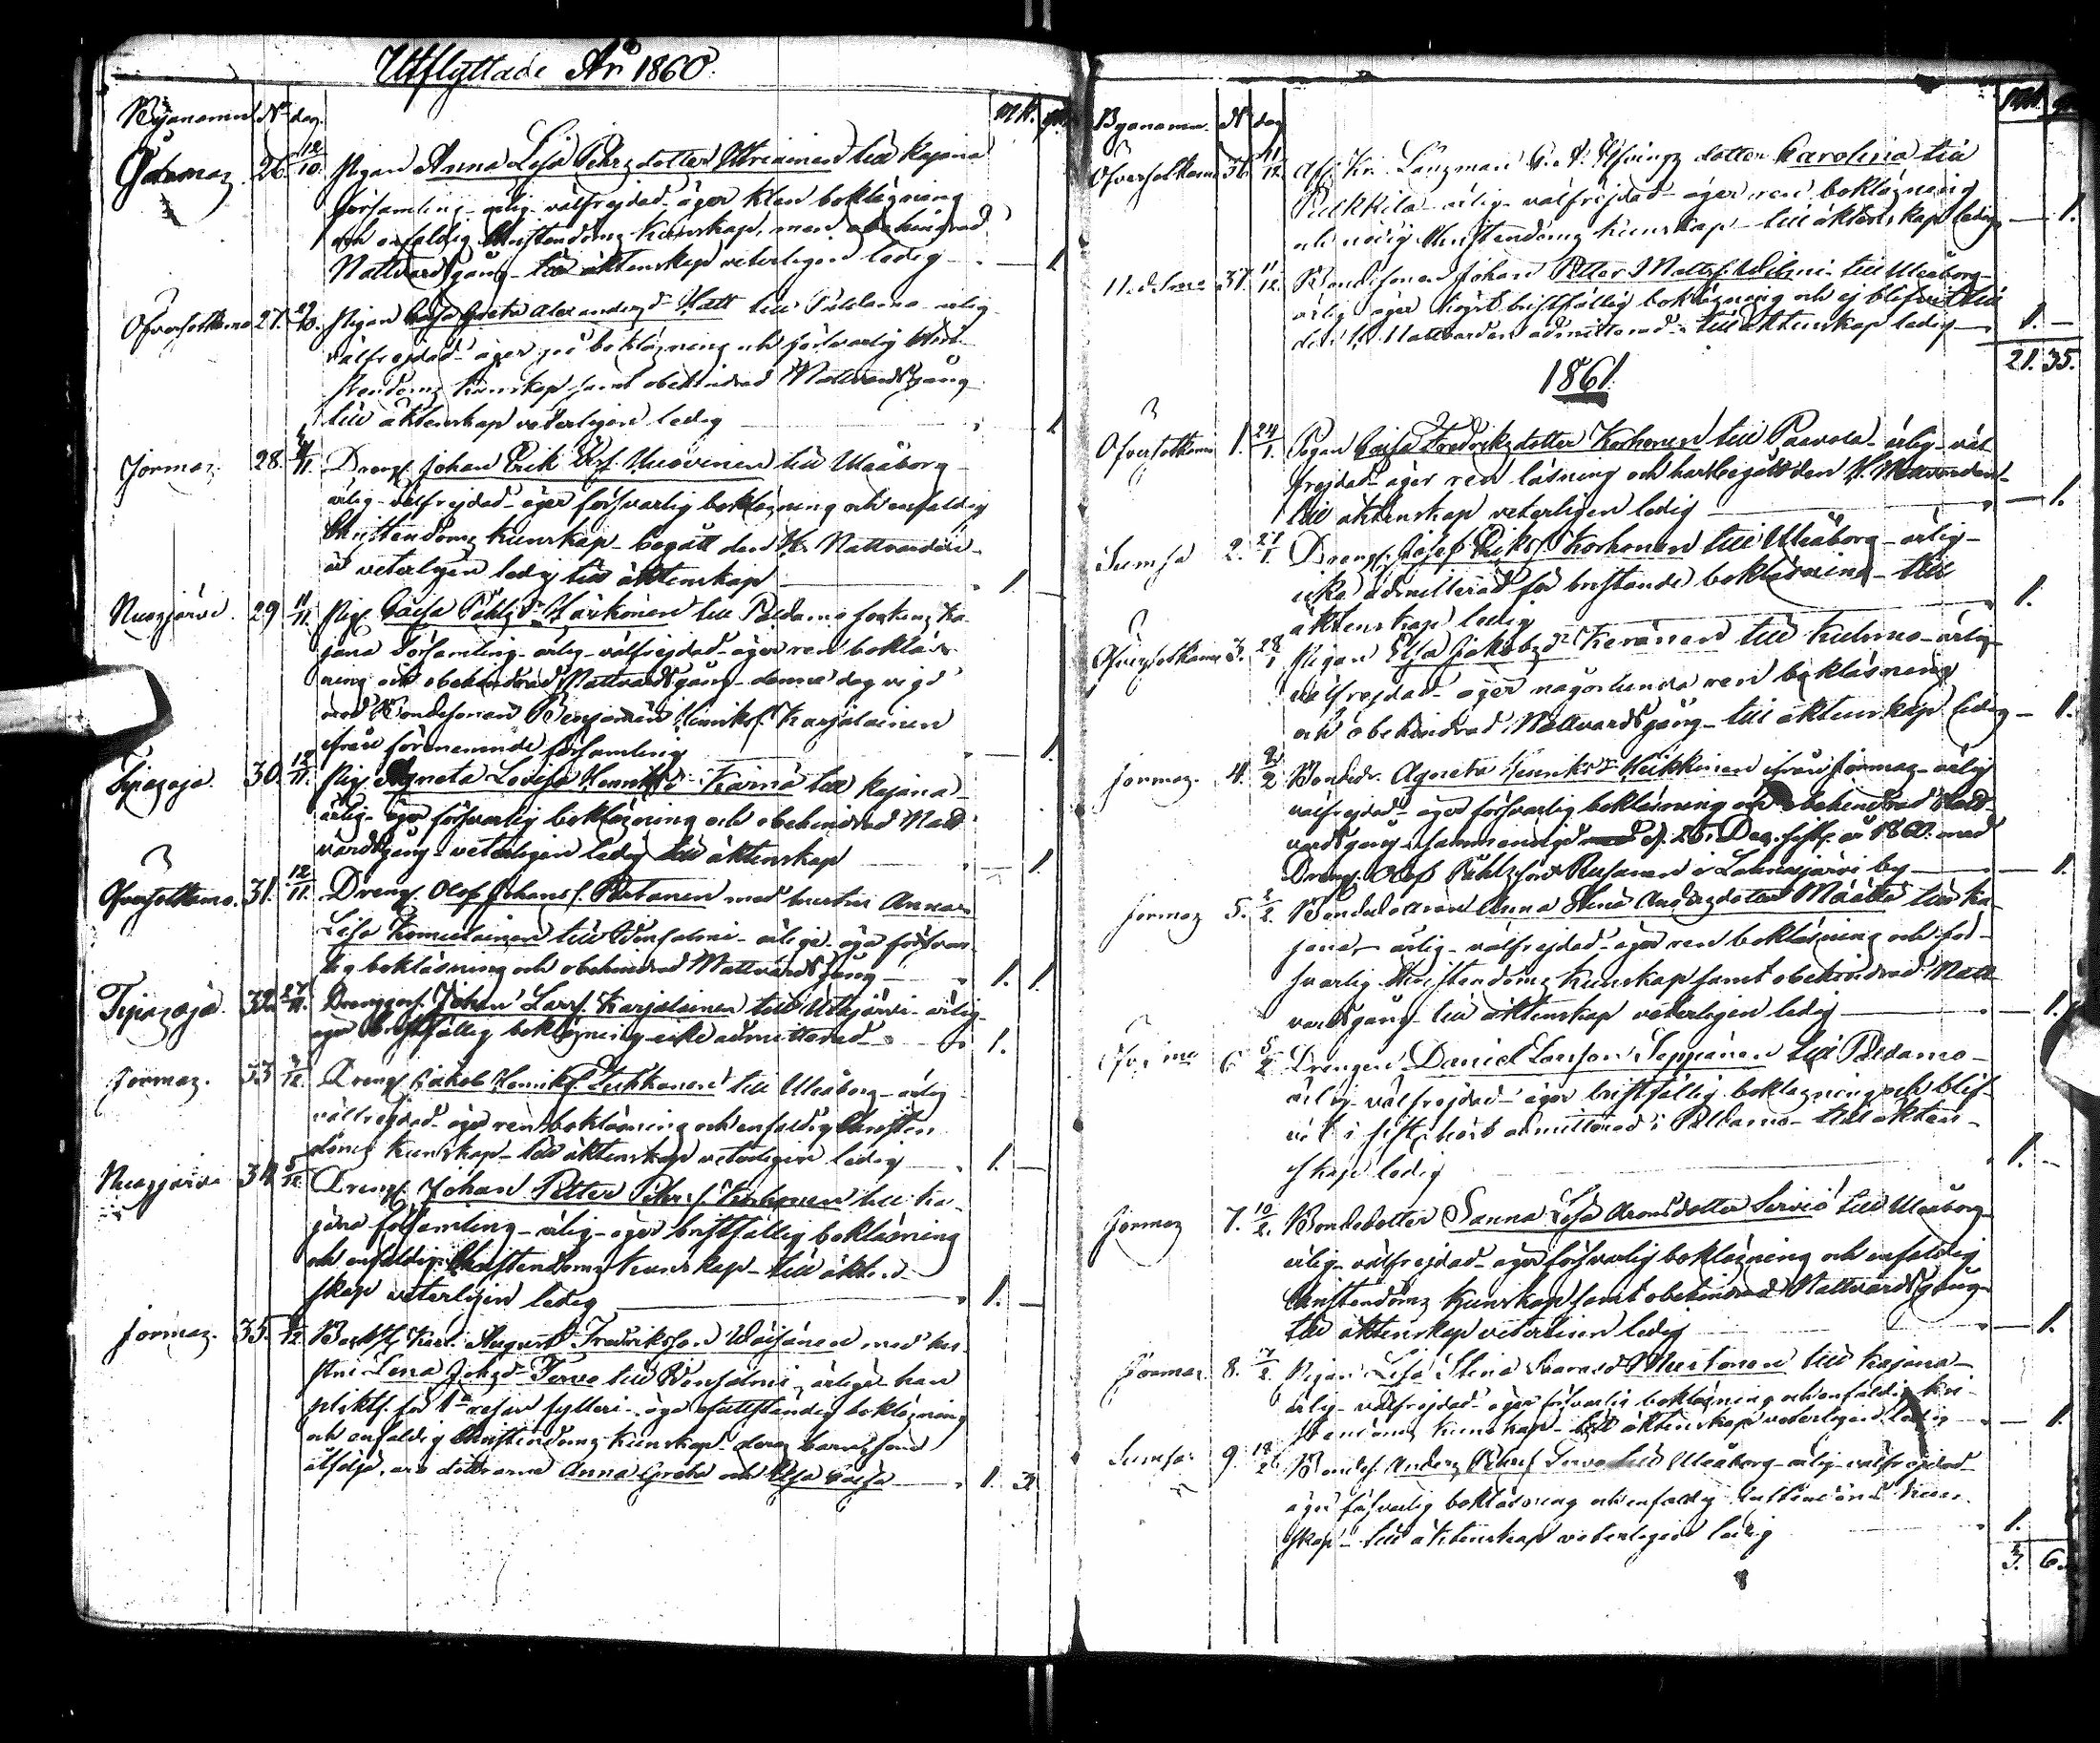 Utflyttade År 1860.
Byanamn No dag. M.K. qk.
Jormaz. 26. 12/10. Pigan Anna Lisa Pehrsdotter till Kajana
församling - ärlig - välfrejdad - äger klen bokläsning
och enfaldig Christendoms kunskap, men obehindrad
Nattvardsgång - till äktenskap veterligen ledig 1.
Öfversotkamo 27. /10. Pigan Caisa Greta Alexandersd:r Hatt till Paldamo - ärlig
välfrejdad - äger bokläsning och försvarlig Chri-
stendoms kunskap samt obehindrad Nattvardsgång
till äktenskap veterligen ledig 1.
Jormaz. 28. /11. Drengs. Johan Erik till Uleåborg -
ärlig - välfrejdad - äger försvarlig bokläsning och enfaldig
Christendoms kunskap - begått den H. Nattvarden -
är veterligen ledig till äktenskap 1.
Nuasjärvi. 29 11/11. Pig. Caisa Påhlsd:r Härkönen till Paldamo Ka-
jana församling - ärlig - välfrejdad - äger ren boklä-
ning och obehindrad Nattvardsgång - denna dag vigd
med Bondesonen Benjamin Henriks. Karjalainen
ifrån förenämnde församling 1.
Tipasoja. 30. 12/11. Pig. Agneta Lovisa Henriksd:r Kärnä till Kajana -
ärlig - äger försvarlig bokläsning och obehindrad Natt
vardsgång - veterligen ledig till äktenskap 1.
Öfversotkamo. 31. 12/11. Drengs. Olof Johans. Partanen med hustru Anna
Lisa Komulainen till Idensalmi - ärliga - äga försvar-
lig bokläsning och obehindrad Nattvardsgång 1. 1.
Tipasoja. 32. 27/11. Johan Lars. Karjalainen till - ärlig -
äger bristfällig bokläsning - icke admitterad 1.
Jormaz. 33 /12. Drengs. Jakob Henriks. till Uleåborg - ärlig
välfrejdad - äger ren bokläsning och enfaldig Christen
doms kunskap - till äktenskap veterligen ledig 1.
Nuasjärvi 34 5/12. Drengs. Johan Petter Pehrs. Korhonen till Ka-
jana församling - ärlig - äger bristfällig bokläsning
och enfaldig Christendoms kunskap - till äkten-
skap veterligen ledig 1.
Jormaz. 35. /12. Karl August Fredriksson Väisänen med hu-
stru Lena Johsd:r Tervo till Idensalmi - ärliga - han
pliktf. för 1:a resan fylleri - äga ofullständig bokläsning
och enfaldig Christendoms kunskap - deras barn, som
åtfölja, äro döttrarna Anna Greta och Elsa Caisa 1. 3.
Byanamn. No dag M.K. qk.
Öfversotkamo 36. 11/12. Länzman dotter Karolina till
Pulkkila - ärlig - välfrejdad - äger ren bokläsning
och nödig Christendoms kunskap - till äktenskap ledig 1.
37. 11/12. Bondesonen Johan Petter Matts. till Uleåborg -
ärlig - äger högst bristfällig bokläsning och ej blifvit till
den H. Nattvarden admitterad - till äktenskap ledig 1.
21. 35.
1861.
Öfversotkamo 1. 24/1. Pigan Caisa Fredriksdotter Korhonen till Paavola - ärlig - väl-
frejdad - äger ren läsning och har begått den H. Nattvarden -
till äktenskap veterligen ledig 1.
Sumsa 2. 27/1. Drengs. Josef Eriks. Korhonen till Uleåborg - ärlig -
icke admitterad för bristande bokläsning - till
äktenskap ledig 1.
Öfversotkamo 3. 28/1 Pigan Elsa Jakobsd:r Keränen till Kuhmo - ärlig -
välfrejdad - äger någorlunda ren bokläsning
och obehindrad Nattvardsgång - till äktenskap ledig 1.
Jormaz. 4. 2/2 Agneta Henriksd:r Heikkinen ifrån Jormaz - ärlig
välfrejdad - äger försvarlig bokläsning och obehindrad Natt-
vardsgång - sammanvigd d. 26. Dec. sistl. år 1860. med
Dreng. Olof Påhlsson Rusanen i by 1.
Jormaz 5. 2/2. Bondedottern Anna Stina Andersdotter Määttä till Ka-
jana - ärlig - välfrejdad - äger ren bokläsning och för-
svarlig Christendoms kunskap samt obehindrad Natt
vardsgång - till äktenskap veterligen ledig 1.
6 5/2 Drengen Daniel Larsson Seppänen till Paldamo -
ärlig - välfrejdad - äger bristfällig bokläsning och blif-
vit i sistl. höst admitterad i Paldamo - till äkten-
skap ledig 1.
Jormaz 7. 10/2. Bondedotter Sanna Lisa Aronsdotter Serviö till Uleåborg
ärlig - välfrejdad - äger försvarlig bokläsning och enfaldig
Christendoms kunskap samt obehindrad Nattvardsgång
till äktenskap veterligen ledig 1.
Jormaz. 8. 17/2. Pigan Lisa Stina Mustonen till Kajana -
ärlig - välfrejdad - äger försvarlig bokläsning och enfaldig Kri-
stendoms kunskap - till äktenskap veterligen ledig 1.
Sumsa 9. 18/2 Bondes. Anders Pehrs. Tervo till Uleåborg - ärlig - välfrejdad
äger försvarlig bokläsning och enfaldig kun-
skap - till äktenskap veterligen ledig 1.
3. 6.